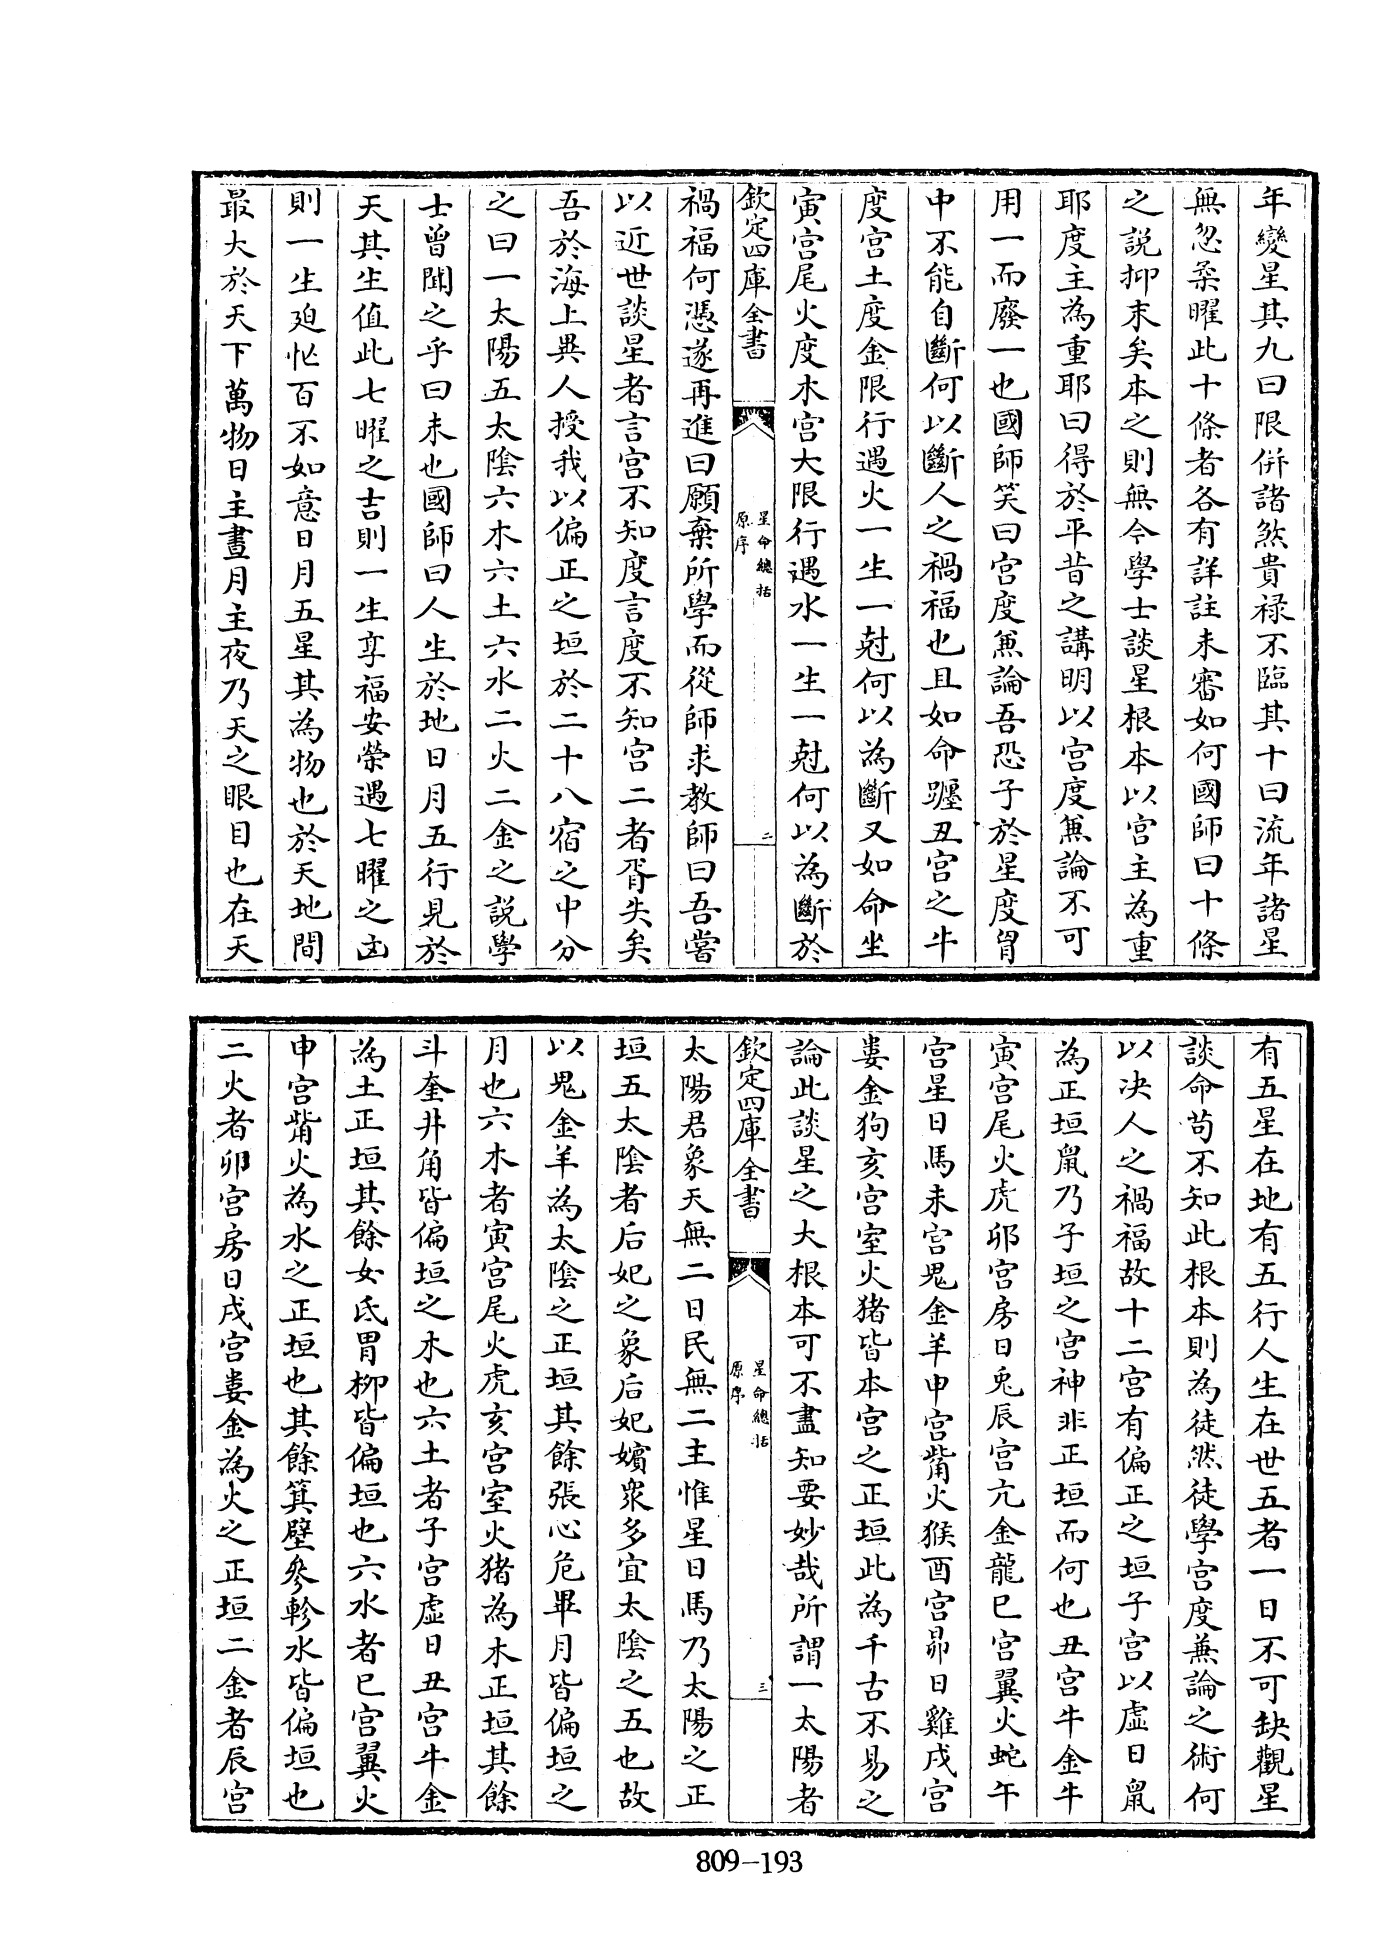 年變星其九曰限併諸煞貴禄不臨其十曰流年諸星
無忽柔曜此十條者各有詳註未審如何國師曰十條
之説抑末矣本之則無今學士談星根本以宫主為重
耶度主為重耶曰得於平昔之講明以宫度兼論不可
用一而廢一也國師笑曰宫度兼論吾恐子於星度胷
中不能自斷何以斷人之禍福也且如命躔丑宫之牛
度宫土度金限行遇火一生一尅何以為斷又如命坐
寅宫尾火度木宫大限行遇水一生一尅何以為斷於
欽定四庫全書
星命總括
原序
二
禍福何憑遂再進曰願棄所學而從師求教師曰吾嘗
以近世談星者言宫不知度言度不知宫二者胥失矣
吾於海上異人授我以偏正之垣於二十八宿之中分
之曰一太陽五太陰六木六土六水二火二金之説學
士曾聞之乎曰未也國師曰人生於地日月五行見於
天其生值此七曜之吉則一生享福安榮遇七曜之凶
則一生廹忙百不如意日月五星其為物也於天地間
最大於天下萬物日主晝月主夜乃天之眼目也在天
有五星在地有五行人生在世五者一日不可缺觀星
談命苟不知此根本則為徒然徒學宫度兼論之術何
以决人之禍福故十二宫有偏正之垣子宫以虚日鼠
為正垣鼠乃子垣之宫神非正垣而何也丑宫牛金牛
寅宫尾火虎卯宫房日兎辰宫亢金龍巳宫翼火蛇午
宫星日馬未宫鬼金羊申宫觜火猴酉宫昴日雞戌宫
婁金狗亥宫室火猪皆本宫之正垣此為千古不易之
論此談星之大根本可不盡知要妙哉所謂一太陽者
欽定四庫全書
星命總括
原序
三
太陽君象天無二日民無二主惟星日馬乃太陽之正
垣五太陰者后妃之象后妃嬪衆多宜太陰之五也故
以鬼金羊為太陰之正垣其餘張心危畢月皆偏垣之
月也六木者寅宫尾火虎亥宫室火猪為木正垣其餘
斗奎井角皆偏垣之木也六土者子宫虚日丑宫牛金
為土正垣其餘女氐胃柳皆偏垣也六水者巳宫翼火
申宫觜火為水之正垣也其餘箕壁參軫水皆偏垣也
二火者卯宫房日戌宫婁金為火之正垣二金者辰宫
809-193